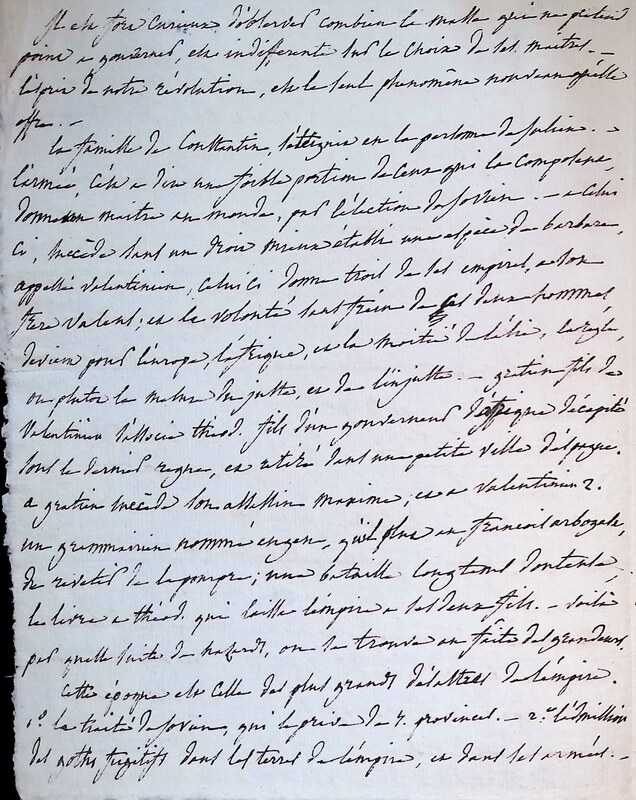 Il est fort curieux d'observer combien la masse qui ne pretend
point a gouverner, est indifferente sur le choix de ses maitres. —
l'esprit de notre révolution, est le seul phenomène nouveau qu'elle
offre. —
la famille de Constantin, s'éteignit en la personne de Julien. —
l'armée, c'est a dire une foible portion de ceux qui la composent,
donne un maitre au monde, par l'élection de Jovien. — a celui
ci, succède sans un droit mieux établi une espèce de barbare,
appellé valentinien, celui ci donne trois de ses empires, a son
frère valens; et la volonté sans frein de ces deux hommes
devient pour l'europe, l'afrique, et la moitié de l'asie, la règle,
ou plutot la mesure du juste, et de l'injuste. — gratien fils de
Valentinien s'associe théod. fils d'un gouverneur d'affrique décapité
sous le dernier regne, et retiré dans une petite ville d'espagne.
a gratien succède son assassin maxime; et a valentinien 2.
un grammairien nommé eugene, qu'il plut au francois arbogaste,
de revetir de la pourpre; une bataille longtems douteuse,
la livre a théod. qui laisse l'empire a ses deux fils. — voilà
par quelle suite de hasards, on se trouve au faîte des grandeurs.
Cette époque est celle des plus grands désastres de l'empire.
1.º le traité de Jovien, qui le prive de 5. provinces. — 2.º l'admission
des goths fugitifs dans les terres de l'empire, et dans ses armées. —